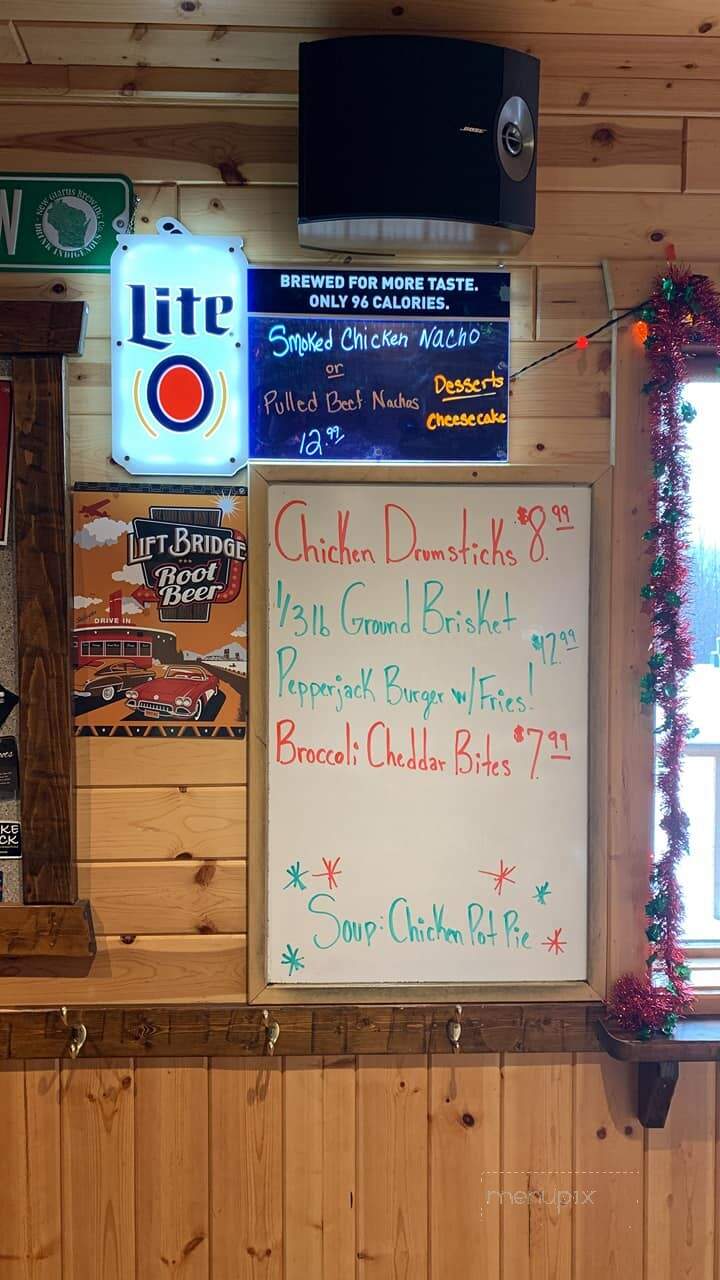 BOSE
W
NEW GLARUS BREWING CO.
DRINK INDIGENOUS
Lite
BREWED FOR MORE TASTE.
ONLY 96 CALORIES.
Smoked Chicken Nacho
or
Pulled Beef Nachos
12.99
Desserts
Cheesecake
LIFT BRIDGE
Root
Beer
DRIVE IN
Chicken Drumsticks $8.99
1/3 lb Ground Brisket
Pepperjack Burger w/Fries! $12.99
Broccoli Cheddar Bites $7.99
Soup: Chicken Pot Pie
menupix